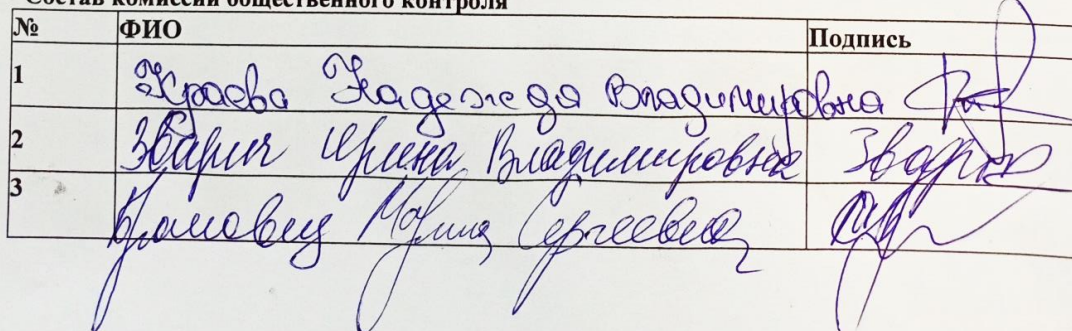 Состав комиссии общественного контроля
№ ФИО Подпись
1 Краева Надежда Владимировна
2 Зварич Ирина Владимировна Зварич
3 Марина Сергеевна